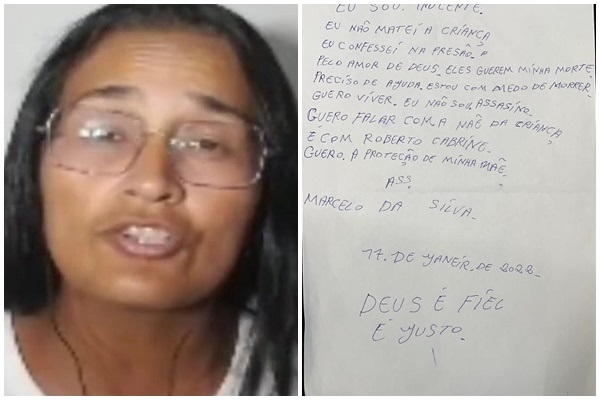 EU SOU. INOCENTE.
EU NÃO MATEI A CRIANÇA
EU CONFESSEI NA PRESÃO.
PELO AMOR DE DEUS. ELES QUEREM MINHA MORTE.
PRECISO DE AYUDA. ESTOU COM MEDO DE MORRER.
QUERO VIVER. EU NÃO SOU ASSASINO.
QUERO FALAR COM A MÃE DA CRIANÇA
E COM ROBERTO CABRINE.
QUERO. A PROTEÇÃO DE MINHA MÃE.
ASS.
MARCELO DA SILVA.
17. DE YANEIR. DE 2022
DEUS É FIEL
E YUSTO.